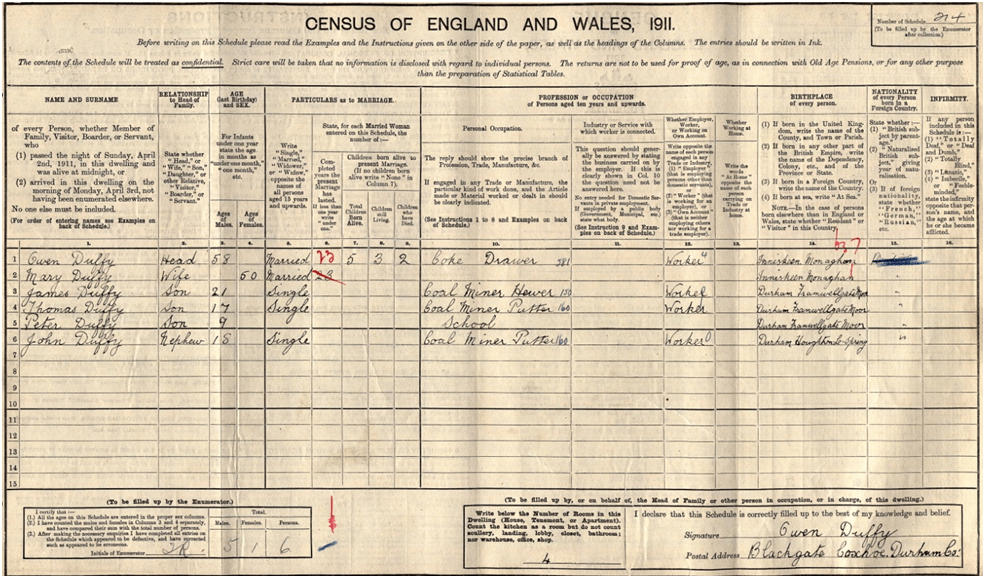 CENSUS OF ENGLAND AND WALES, 1911.
Number of Schedule 214
(To be filled up by the Enumerator
after collection.)
Before writing on this Schedule please read the Examples and the Instructions given on the other side of the paper, as well as the headings of the Columns. The entries should be written in Ink.
The contents of the Schedule will be treated as confidential. Strict care will be taken that no information is disclosed with regard to individual persons. The returns are not to be used for proof of age, as in connection with Old Age Pensions, or for any other purpose
than the preparation of Statistical Tables.
NAME AND SURNAME
of every Person, whether Member of
Family, Visitor, Boarder, or Servant,
who
(1) passed the night of Sunday, April
2nd, 1911, in this dwelling and
was alive at midnight, or
(2) arrived in this dwelling on the
morning of Monday, April 3rd, not
having been enumerated elsewhere.
No one else must be included.
(For order of entering names see Examples on
back of Schedule.)
RELATIONSHIP
to Head of
Family.
State whether
"Head," or
"Wife," "Son,"
"Daughter," or
other Relative,
"Visitor,"
"Boarder," or
"Servant."
AGE
(last Birthday)
and SEX.
For Infants
under one year
state the age
in months as
"under one month,"
"one month,"
etc.
Ages of Males.
Ages of Females.
PARTICULARS as to MARRIAGE.
Write
"Single,"
"Married,"
"Widower,"
or "Widow,"
opposite the
names of all
persons
aged 15 years
and upwards.
State, for each Married Woman
entered on this Schedule, the
number of:—
Completed years the present Marriage has lasted.
If less than one year write "under one."
Children born alive to
present Marriage.
(If no children born
alive write "None" in
Column 7).
Total Children Born Alive.
Children still Living.
Children who have Died.
PROFESSION or OCCUPATION
of Persons aged ten years and upwards.
Personal Occupation.
The reply should show the precise branch of
Profession, Trade, Manufacture, &c.
If engaged in any Trade or Manufacture, the
particular kind of work done, and the Article
made or Material worked or dealt in should be
clearly indicated.
(See Instructions 1 to 8 and Examples on back of
Schedule.)
Industry or Service with
which worker is connected.
This question should generally
be answered by stating
the business carried on
by the employer. If this is
clearly shown in Col. 10
the question need not be
answered here.
No entry needed for Domestic Servants
in private employment.
If employed by a public body
(Government, Municipal, etc.)
state what body.
(See Instruction 9 and Examples
on back of Schedule.)
Whether Employer,
Worker,
or Working on
Own Account.
Write opposite the
name of each person
engaged in any
Trade or Industry,
(1) "Employer"
(that is employing
persons other than
domestic servants),
or
(2) "Worker" (that
is working for an
employer), or
(3) "Own Account"
(that is neither
employing others
nor working for a
trade employer).
Whether
Working at
Home.
Write the words
"At Home"
opposite the
name of each
person
carrying on
Trade or
Industry at
home.
BIRTHPLACE
of every person.
(1) If born in the United Kingdom,
write the name of the
County, and Town or Parish.
(2) If born in any other part of
the British Empire, write
the name of the Dependency,
Colony, etc., and of the
Province or State.
(3) If born in a Foreign Country,
write the name of the Country.
(4) If born at sea, write "At Sea."
NOTE.—In the case of persons
born elsewhere than in England or
Wales, state whether "Resident" or
"Visitor" in this Country.
NATIONALITY
of every Person
born in a
Foreign Country.
State whether:—
(1) "British subject
by parentage."
(2) "Naturalised
British subject,"
giving
year of naturalisation.
Or
(3) If of foreign
nationality,
state whether
"French,"
"German,"
"Russian,"
etc.
INFIRMITY.
If any person
included in this
Schedule is:—
(1) "Totally
Deaf," or "Deaf
and Dumb,"
(2) "Totally
Blind,"
(3) "Lunatic,"
(4) "Imbecile,"
or "Feeble-minded,"
state the infirmity
opposite that person's
name, and the age at
which he or she became
afflicted.
1. 2. 3. 4. 5. 6. 7. 8. 9. 10. 11. 12. 13. 14. 15. 16.
1 Owen Duffy Head 58 Married 23 5 3 2 Coke Drawer 381 Worker Inniskeen Monaghan
2 Mary Duffy Wife 50 Married 23 Inniskeen Monaghan
3 James Duffy Son 21 Single Coal Miner Hewer 150 Worker Durham Framwellgate Moor
4 Thomas Duffy Son 17 Single Coal Miner Putter 160 Worker Durham Framwellgate Moor "
5 Peter Duffy Son 9 School Durham Framwellgate Moor "
6 John Duffy Nephew 18 Single Coal Miner Putter 160 Worker Durham Houghton-le-Spring "
7
8
9
10
11
12
13
14
15
(To be filled up by the Enumerator.)
I certify that:—
(1.) All the ages on this Schedule are entered in the proper sex columns.
(2.) I have counted the males and females in Columns 3 and 4 separately,
and have compared their sum with the total number of persons.
(3.) After making the necessary enquiries I have completed all entries on
the Schedule which appeared to be defective, and have corrected
such as appeared to be erroneous.
Initials of Enumerator
Total.
Males. Females. Persons.
5 1 6
(To be filled up by, or on behalf of, the Head of Family or other person in occupation, or in charge, of this dwelling.)
Write below the Number of Rooms in this
Dwelling (House, Tenement, or Apartment).
Count the kitchen as a room but do not count
scullery, landing, lobby, closet, bathroom;
nor warehouse, office, shop.
4
I declare that this Schedule is correctly filled up to the best of my knowledge and belief.
Signature Owen Duffy
Postal Address Blackgate Coxhoe. Durham Co: